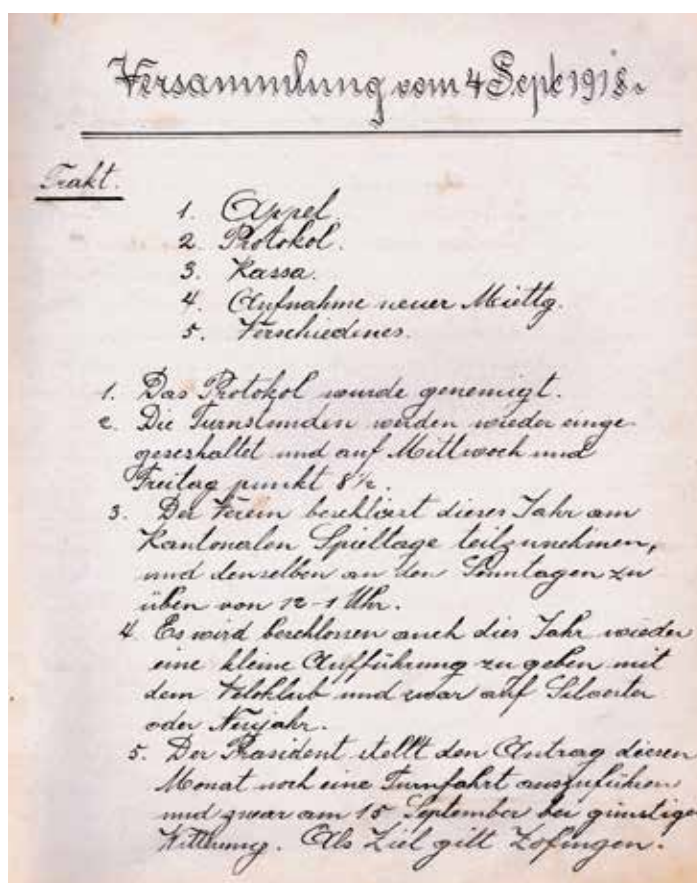 Versammlung vom 4 Sept 1918.
Trakt.
1. Appel.
2. Protokol.
3. Kassa.
4. Aufnahme neuer Miettg.
5. Verschiedines.
1. Das Protokol wurde genemigt.
2. Die Turnstunden werden wieder einge-
geschaltet und auf Mittwoch und
Freitag punkt 8½.
3. Der Verein beschliesst dieses Jahr am
Kantonalen Spieltage teilzunehmen,
und denselben an den Sonntagen zu
üben von 12-1 Uhr.
4. Es wird beschlossen auch dies Jahr wieder
eine kleine Aufführung zu geben mit
dem Veloklub und zwar auf Silvester
oder Neujahr.
5. Der Präsident stellt den Antrag diesen
Monat noch eine Turnfahrt auszuführen
und zwar am 15 September bei günstige
Witterung. Als Ziel gilt Zofingen.